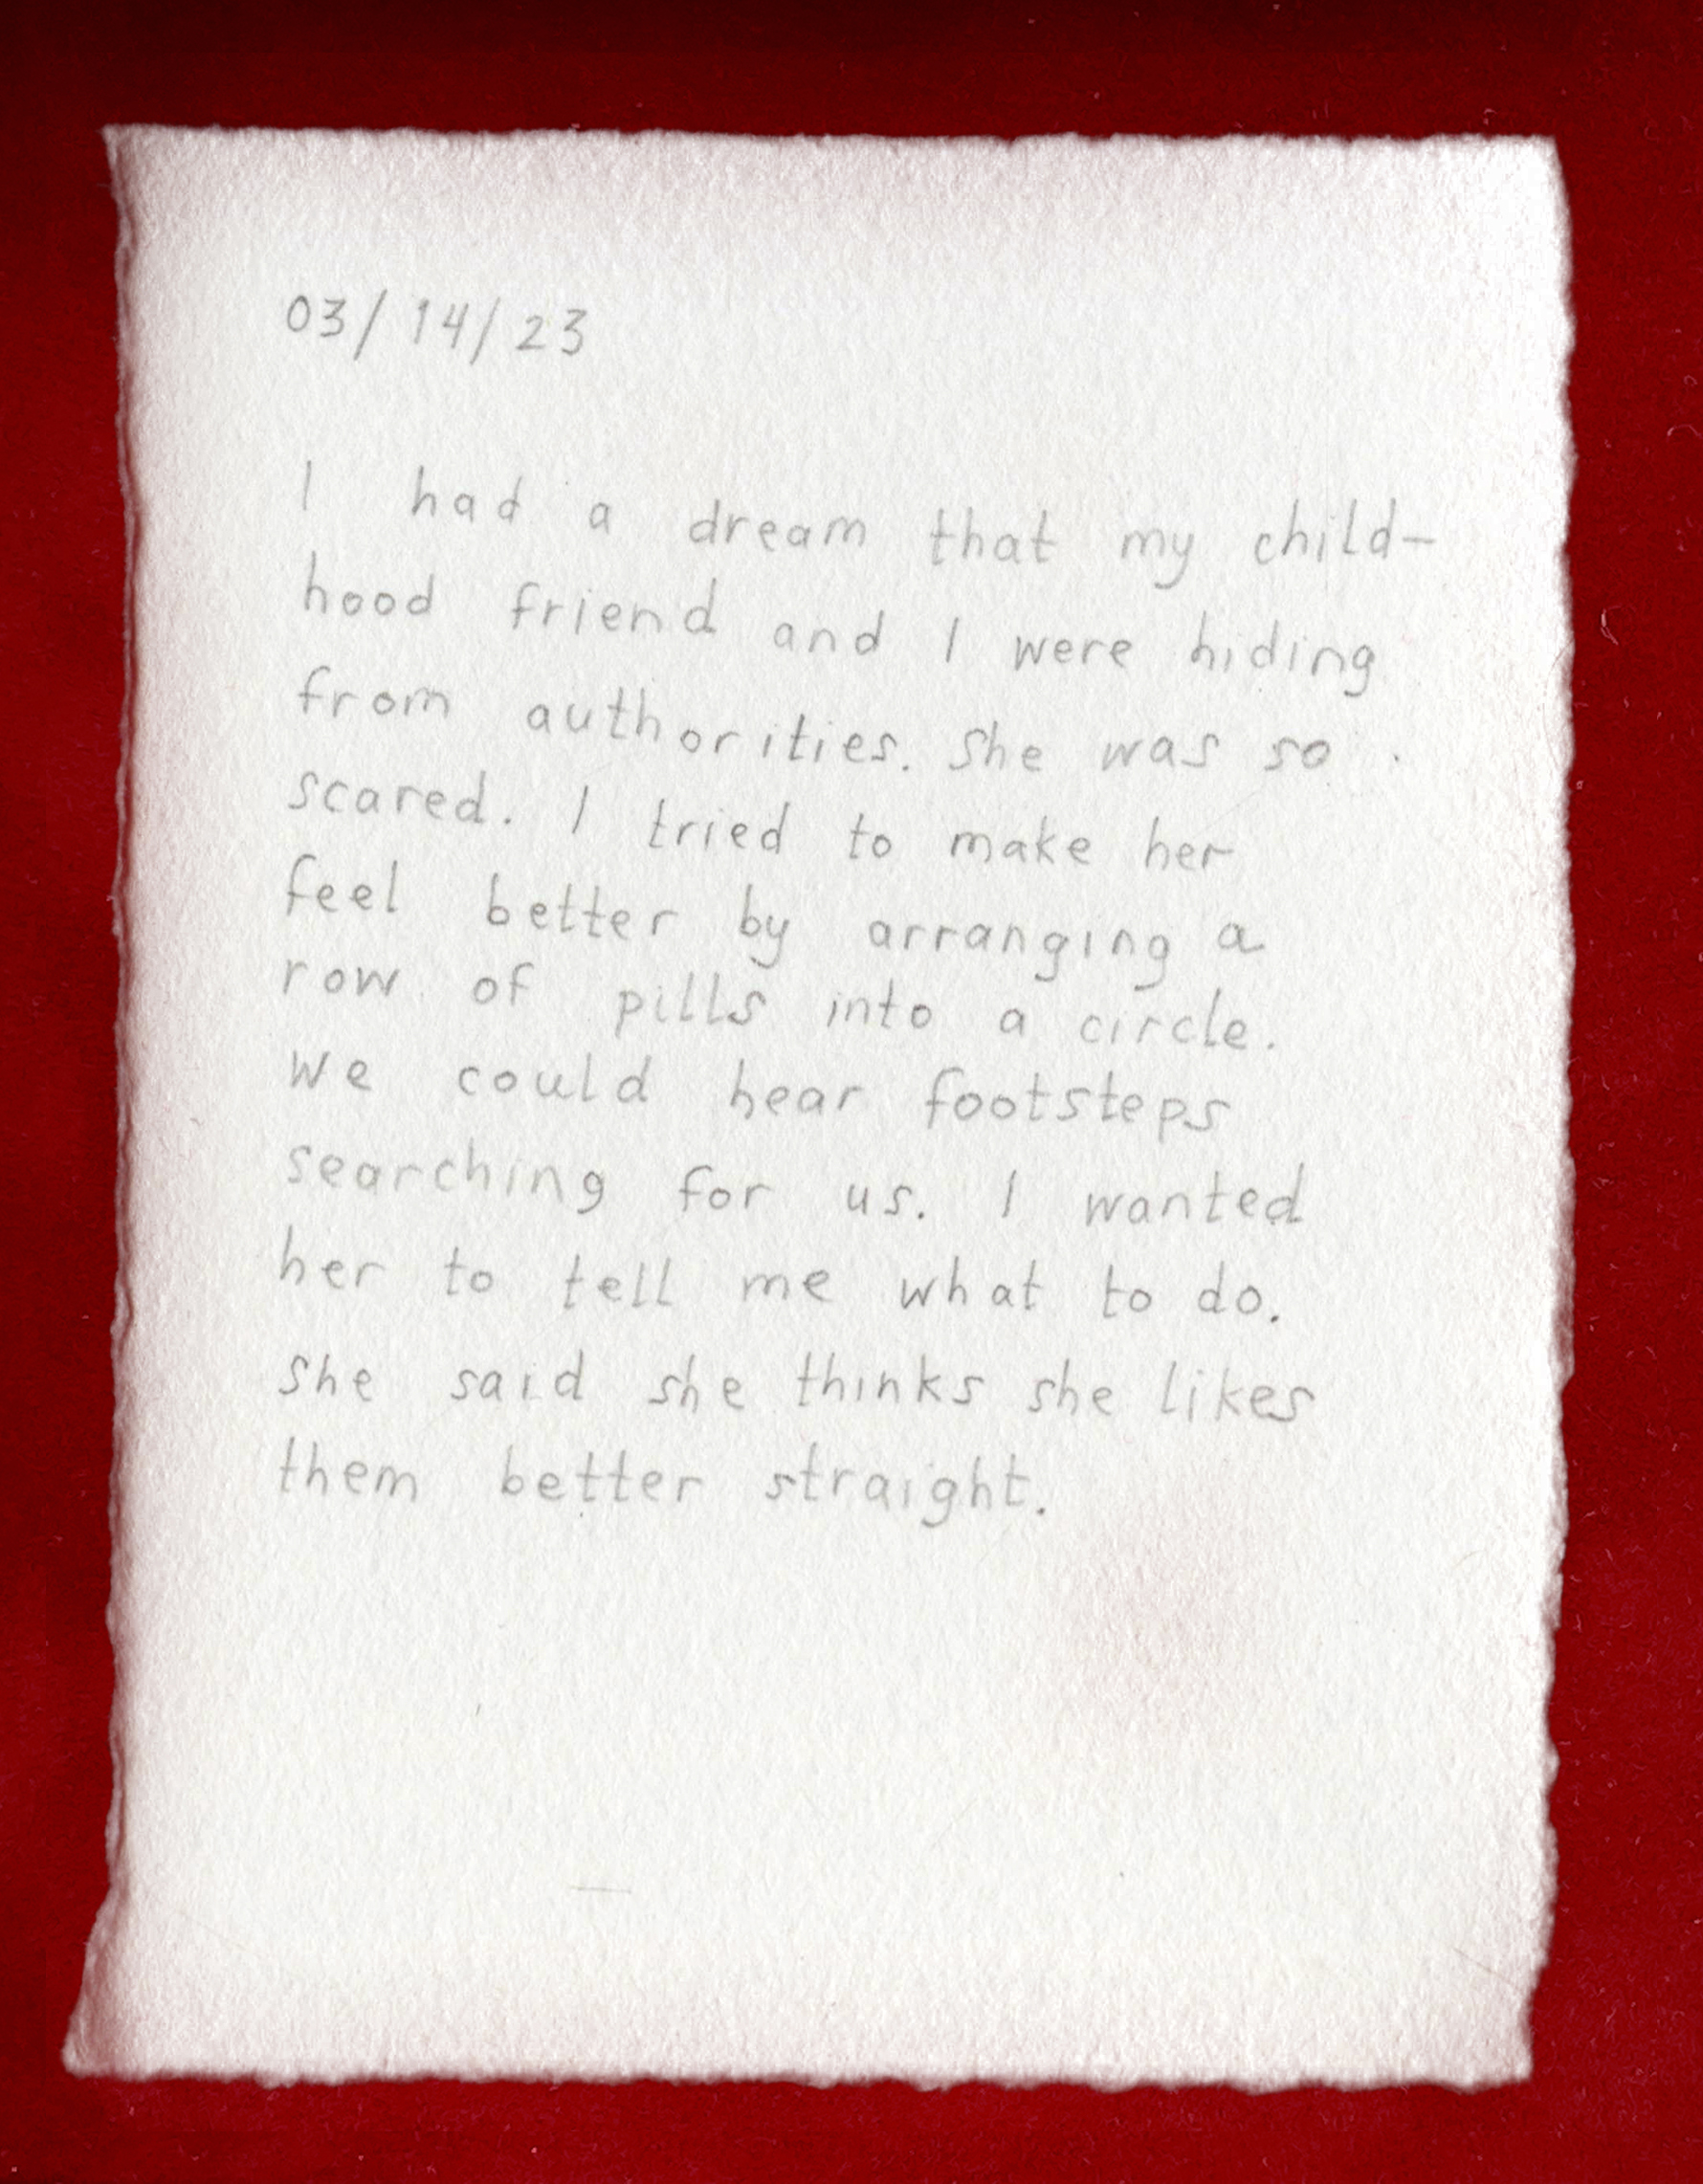 03/14/23
I had a dream that my child-
hood friend and I were hiding
from authorities. She was so
scared. I tried to make her
feel better by arranging a
row of pills into a circle.
We could hear footsteps
searching for us. I wanted
her to tell me what to do.
She said she thinks she likes
them better straight.